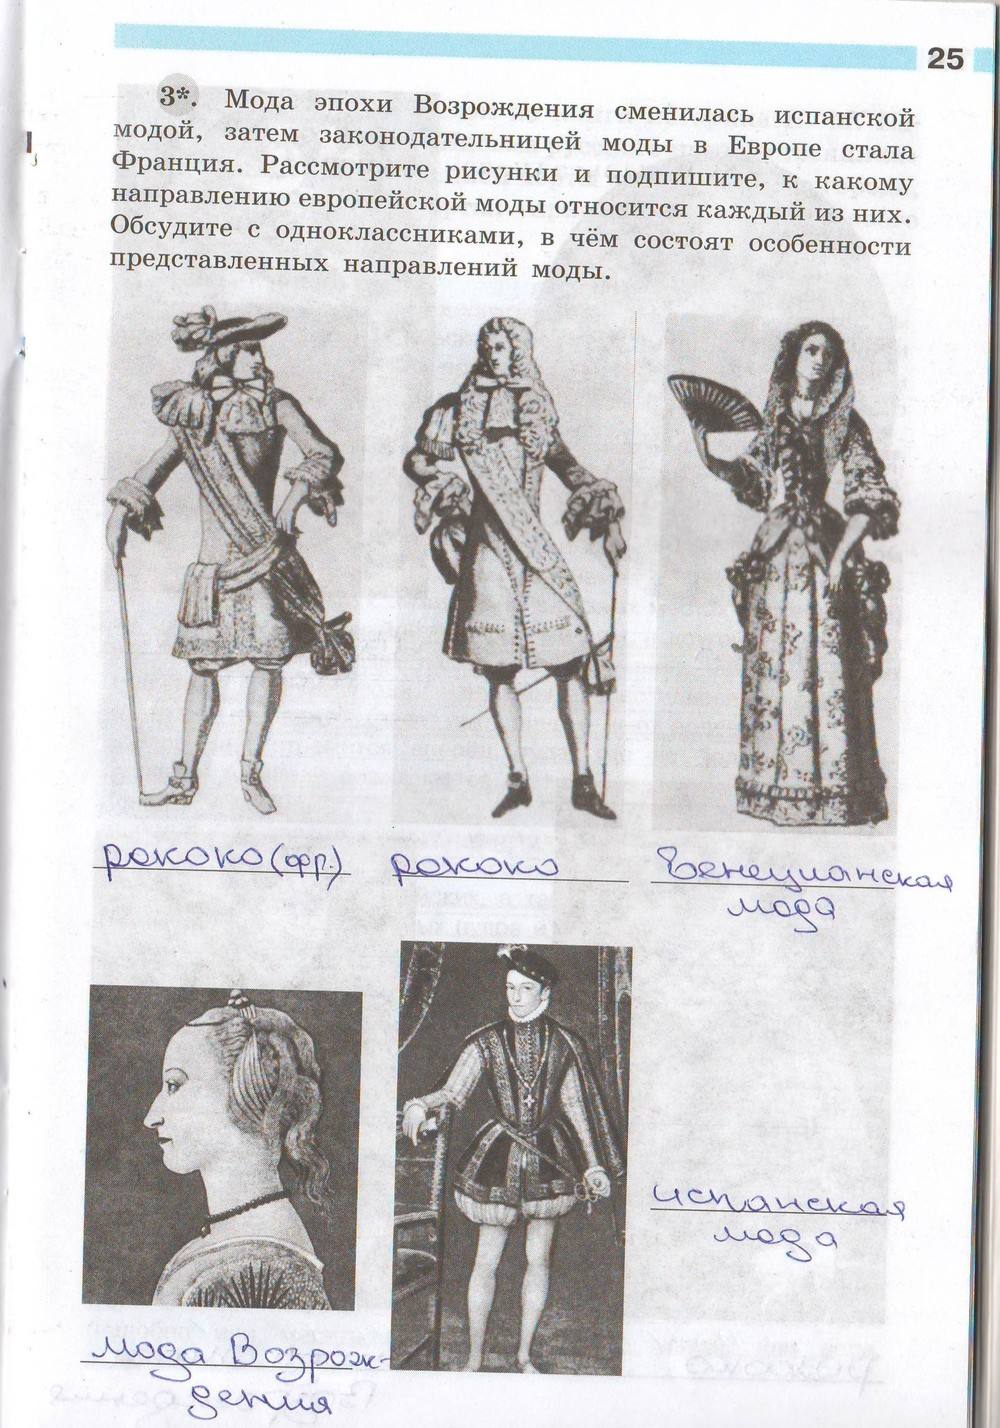 25
3*. Мода эпохи Возрождения сменилась испанской
модой, затем законодательницей моды в Европе стала
Франция. Рассмотрите рисунки и подпишите, к какому
направлению европейской моды относится каждый из них.
Обсудите с одноклассниками, в чём состоят особенности
представленных направлений моды.
рококо (фр.)
рококо
Венецианская
мода
испанская
мода
мода Возрож-
дения